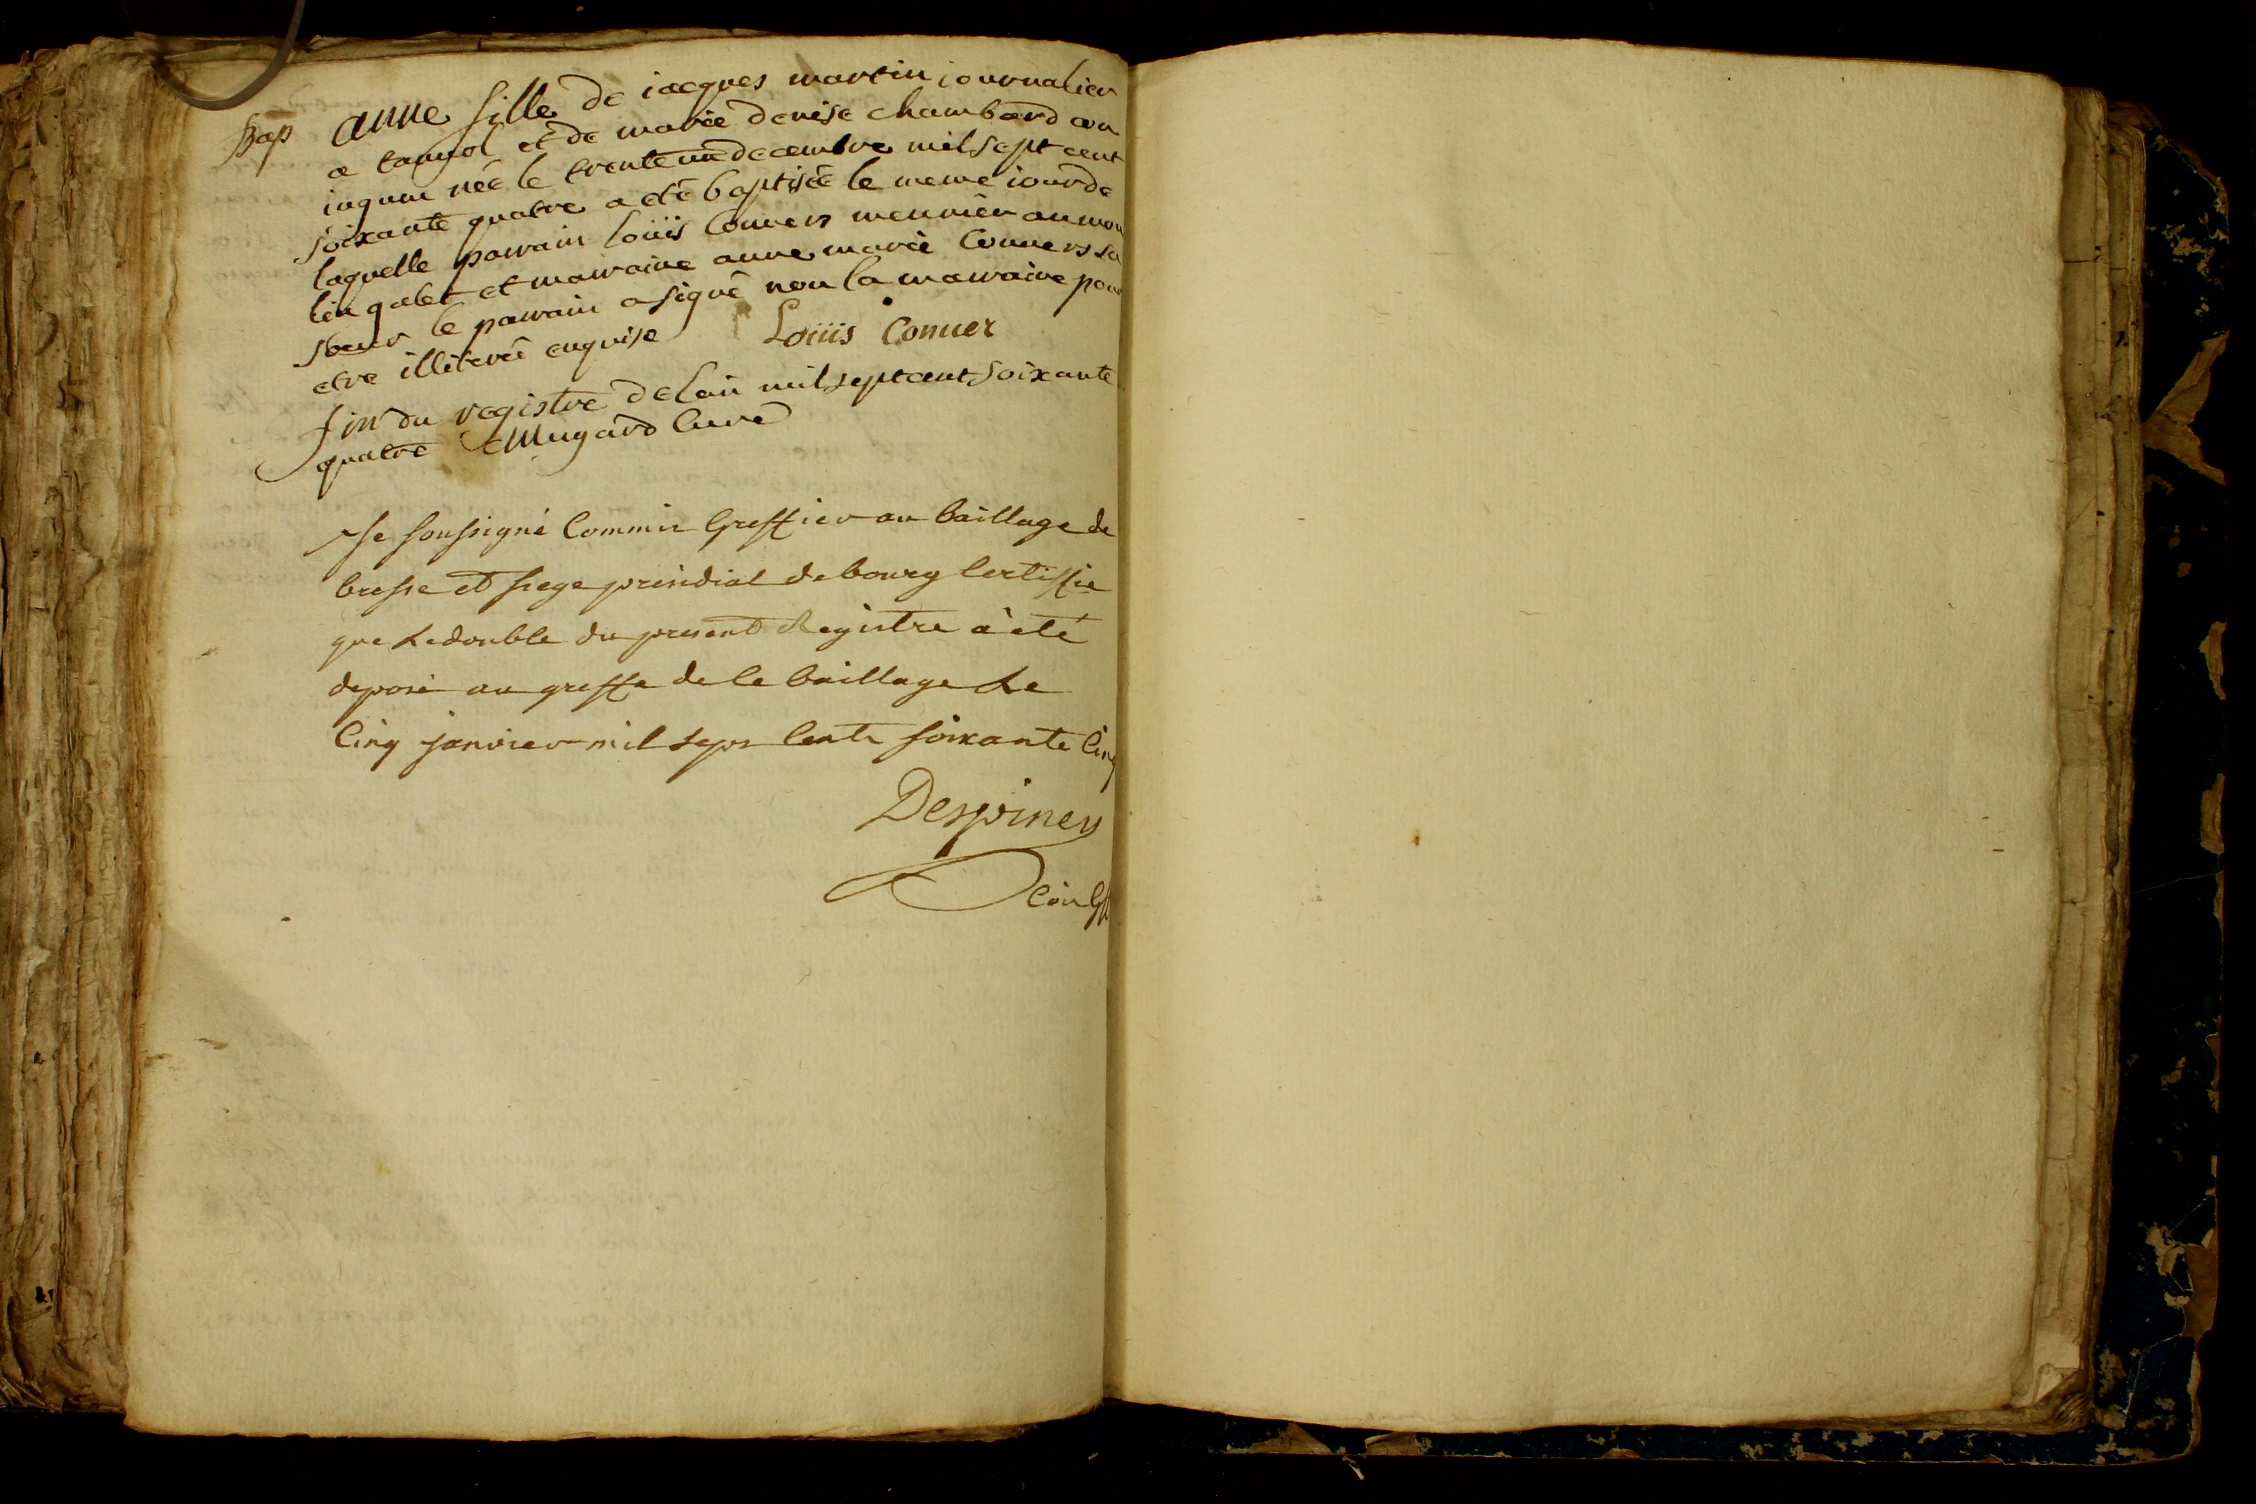 Bap anne fille de iacques martin iournalier
a tanvol et de marie denise chambard con
iugum née le trente un decembre mil sept cent
soixante quatre a eté baptisée le meme iour de
laquelle parrain loüis Convers meunier au mou
lin galet et marraine anne marie Convers sa
soeur le parrain a signé non la marraine pour
etre illiterée enquise Loüis Conver
fin du registre de lan mil sept cent soixante
quatre Mugard Curé
Je soussigné Commis Greffier au baillage de
bresse et siege presidial de bourg Certiffie
que Le double du present Registre à eté
deposé au greffe de le baillage Le
Cinq janvier mil sept Cents soixante Cinq
Despiney